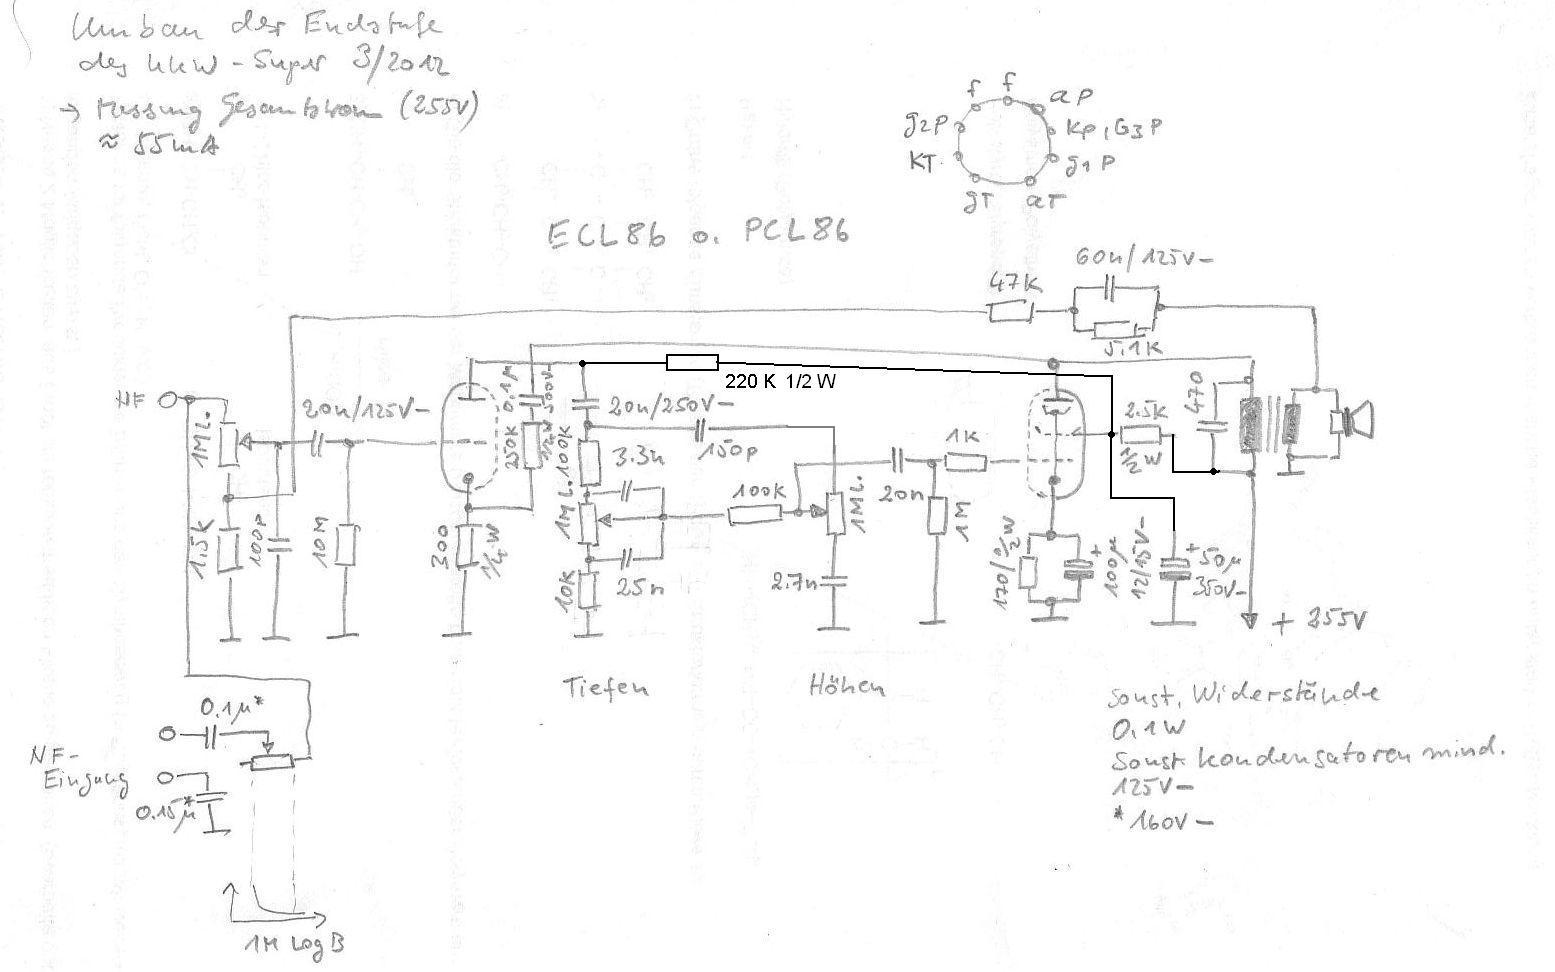 Umbau der Endstufe
des UKW-Super 3/2012
→ Messung Gesamtstrom (255V)
≈ 55mA
f f
aP
g2P
kP, G3P
KT
g1P
gT aT
ECL86 o. PCL86
60n/125V-
47K
5.1K
220 K 1/2 W
NF
1ML.
20n/125V-
0.1µ 500V-
250K 1/4W
20n/250V-
100K
150p
3.3n
1ML.
25n
10K
100K
1ML.
2.7n
20n
1K
1M
2.5K
1/2 W
470
1.5K
100p
10M
300
1/4W
170/1/2W
100µ
12/15V-
+ 50µ
350V-
+ 255V
Tiefen
Höhen
0.1µ*
NF-
Eingang
0.15µ*
1M Log B
Sonst. Widerstände
0.1W
Sonst Kondensatoren mind.
125V-
* 160V-